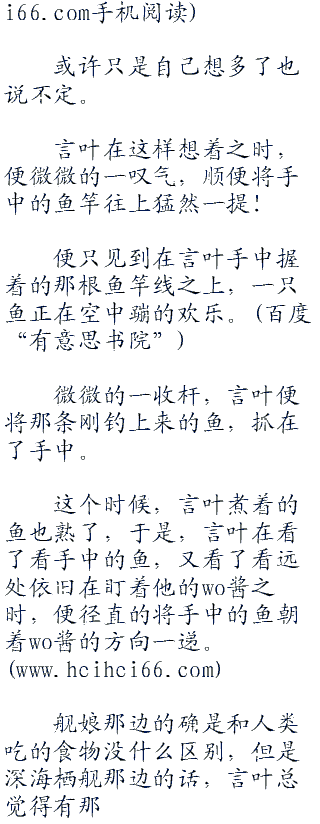 i66.com手机阅读)
或许只是自己想多了也
说不定。
言叶在这样想着之时，
便微微的一叹气，顺便将手
中的鱼竿往上猛然一提！
便只见到在言叶手中握
着的那根鱼竿线之上，一只
鱼正在空中蹦的欢乐。(百度
“有意思书院”)
微微的一收杆，言叶便
将那条刚钓上来的鱼，抓在
了手中。
这个时候，言叶煮着的
鱼也熟了，于是，言叶在看
了看手中的鱼，又看了看远
处依旧在盯着他的wo酱之
时，便径直的将手中的鱼朝
着wo酱的方向一递。
(www.hcihci66.com)
舰娘那边的确是和人类
吃的食物没什么区别，但是
深海栖舰那边的话，言叶总
觉得有那